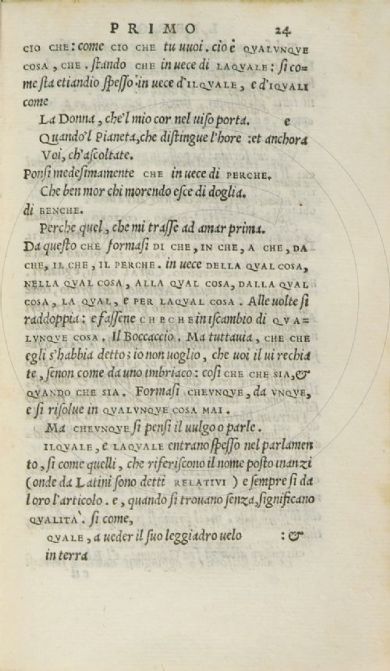 PRIMO 24
CIO CHE: come CIO CHE tu vuoi. cio è QVALVNQVE
COSA, CHE. stando CHE in uece di LAQVALE: si co-
me sta etiandio spesso in uece d'ILQVALE, e d'IQVALI
come
La Donna, che'l mio cor nel uiso porta. e
Quando'l Pianeta, che distingue l'hore: et anchora
Voi, ch'ascoltate.
Ponsi medesimamente CHE in uece di PERCHE.
Che ben mor chi morendo esce di doglia.
di BENCHE.
Perche quel, che mi trasse ad amar prima.
Da questo CHE formasi DI CHE, IN CHE, A CHE, DA
CHE, IL CHE, IL PERCHE. in uece DELLA QVAL COSA,
NELLA QVAL COSA, ALLA QVAL COSA, DALLA QVAL
COSA, LA QVAL, E PER LAQVAL COSA. Alle uolte si
raddoppia: e fassene CHECHE in iscambio di QVA-
LVNQVE COSA. Il Boccaccio. Ma tuttauia, CHE CHE
egli s'habbia detto: io non uoglio, che uoi il ui rechia
te, se non come da uno imbriaco: cosi CHE CHE SIA, &
QVANDO CHE SIA. Formasi CHEVNQVE, da VNQVE,
e si risolue in QVALVNQVE COSA MAI.
Ma CHEVNQVE si pensi il uulgo o parle.
ILQVALE, E LAQVALE entrano spesso nel parlamen
to, si come quelli, che riferiscono il nome posto inanzi
(onde da Latini sono detti RELATIVI) e sempre si da
loro l'articolo. e, quando si trouano senza, significano
QVALITÀ. si come,
QVALE, a ueder il suo leggiadro uelo :&
in terra